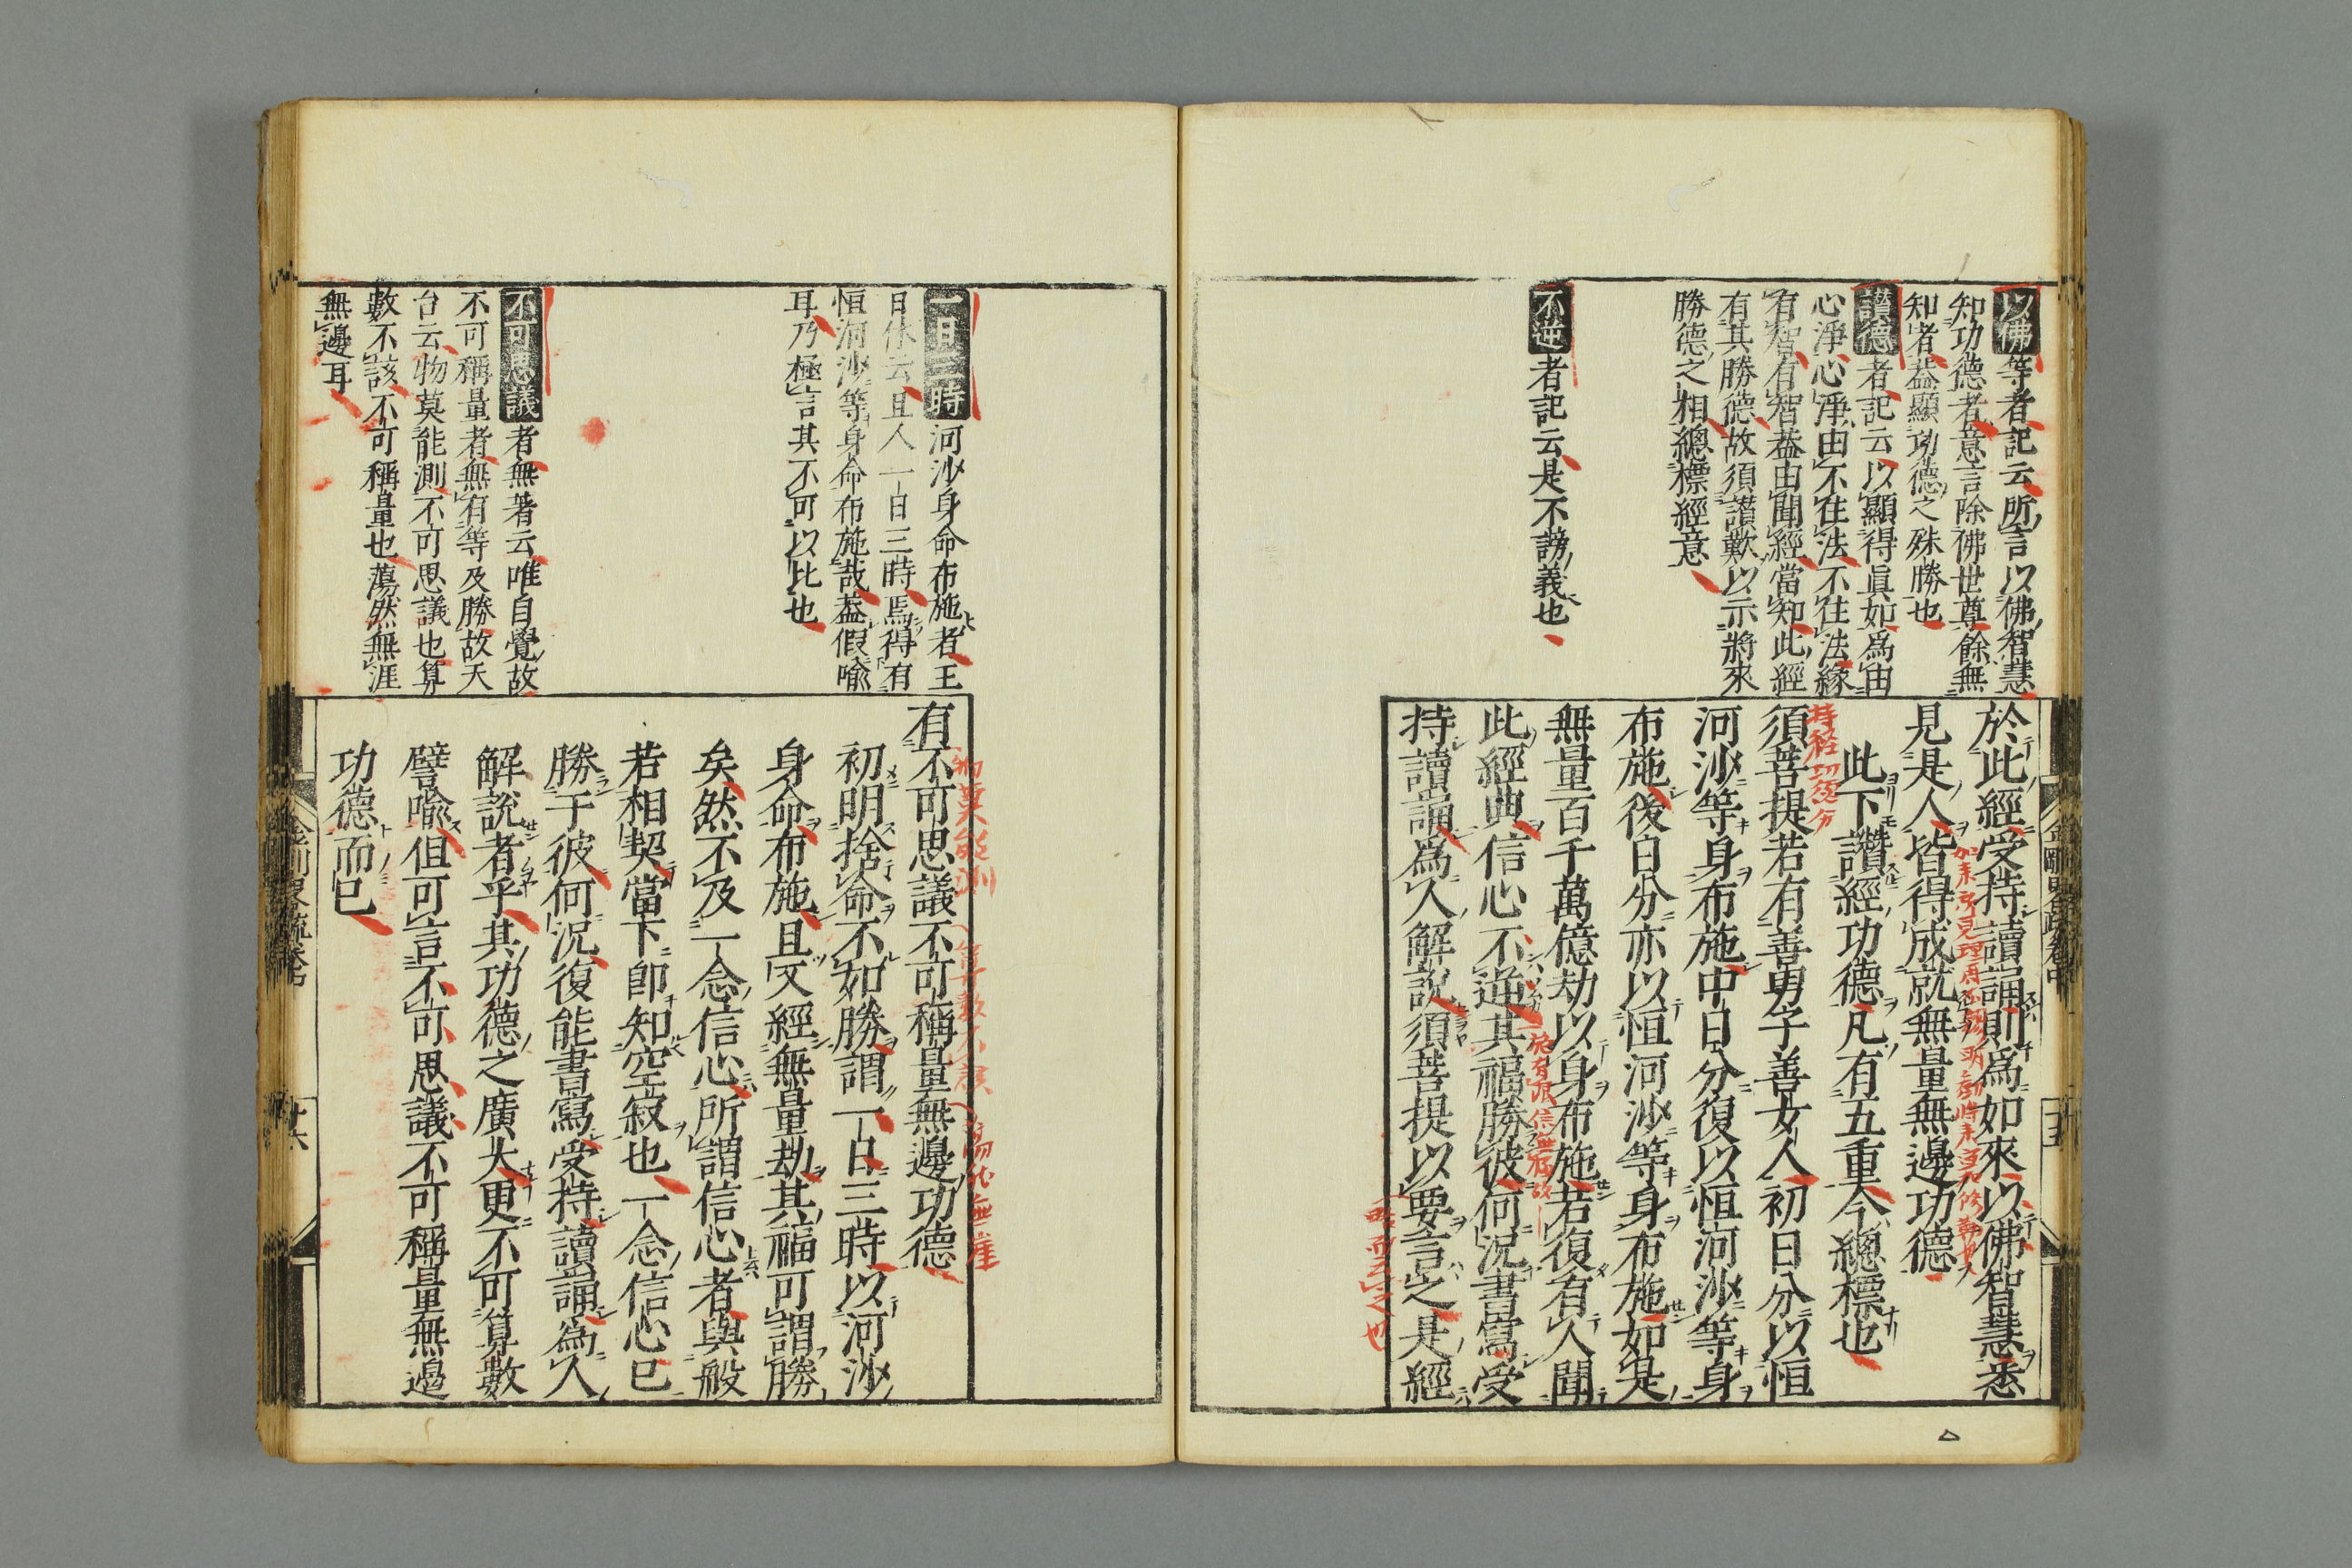 以佛等者記云所言以佛智慧
知功德者意言除佛世尊餘無
知者葢顯功德之殊勝也
讃德者記云以顯得眞如爲由
心淨心淨由不住法不住法緣
有智有智葢由聞經當知此經
有其勝德故須讃歎以示將來
勝德之相總標經意
不逆者記云是不謗義也
於此經受持讀誦則爲如來以佛智慧悉
見是人皆得成就無量無邊功德
此下讃經功德凡有五重今總標也
須菩提若有善男子善女人初日分以恒
河沙等身布施中日分復以恒河沙等身
布施後日分亦以恒河沙等身布施如是
無量百千萬億劫以身布施若復有人聞
此經典信心不逆其福勝彼何況書寫受
持讀誦爲人解說須菩提以要言之是經
持經功德分
一日三時河沙身命布施者王
日休云且人一日三時焉得有
恒河沙等身命布施哉葢假喩
耳乃極言其不可以比也
不可思議者無著云唯自覺故
不可稱量者無有等及勝故天
台云物莫能測不可思議也算
數不該不可稱量也蕩然無涯
無邊耳
有不可思議不可稱量無邊功德
初明捨命不如勝謂一日三時以河沙
身命布施且又經無量劫其福可謂勝
矣然不及一念信心所謂信心者與般
若相契當下卽知空寂也一念信心已
勝于彼何況復能書寫受持讀誦爲人
解說者乎其功德之廣大更不可算數
譬喩但可言不可思議不可稱量無邊
功德而已
十六